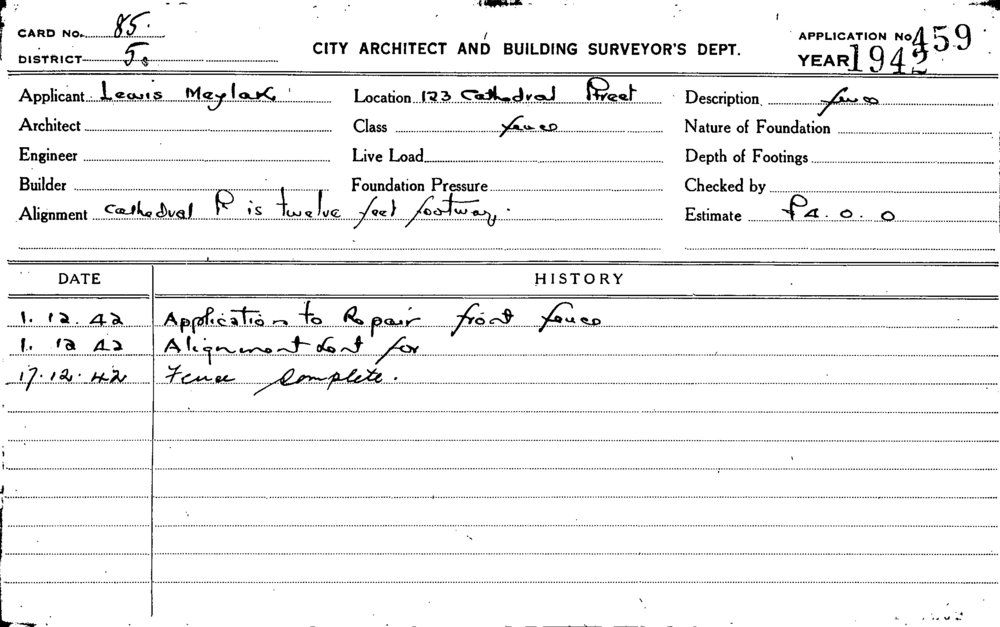 CARD No. 85.
DISTRICT 5.
CITY ARCHITECT AND BUILDING SURVEYOR'S DEPT.
APPLICATION No. 459
YEAR 1942
Applicant Lewis Meylak
Location 123 Cathedral Street
Description fence
Architect
Class fence
Nature of Foundation
Engineer
Live Load
Depth of Footings
Builder
Foundation Pressure
Checked by
Alignment Cathedral St is twelve feet footway.
Estimate £4.0.0
DATE HISTORY
1. 12. 42 Application to Repair front fence
1. 12 42 Alignment sent for
17. 12. 42 Fence Complete.